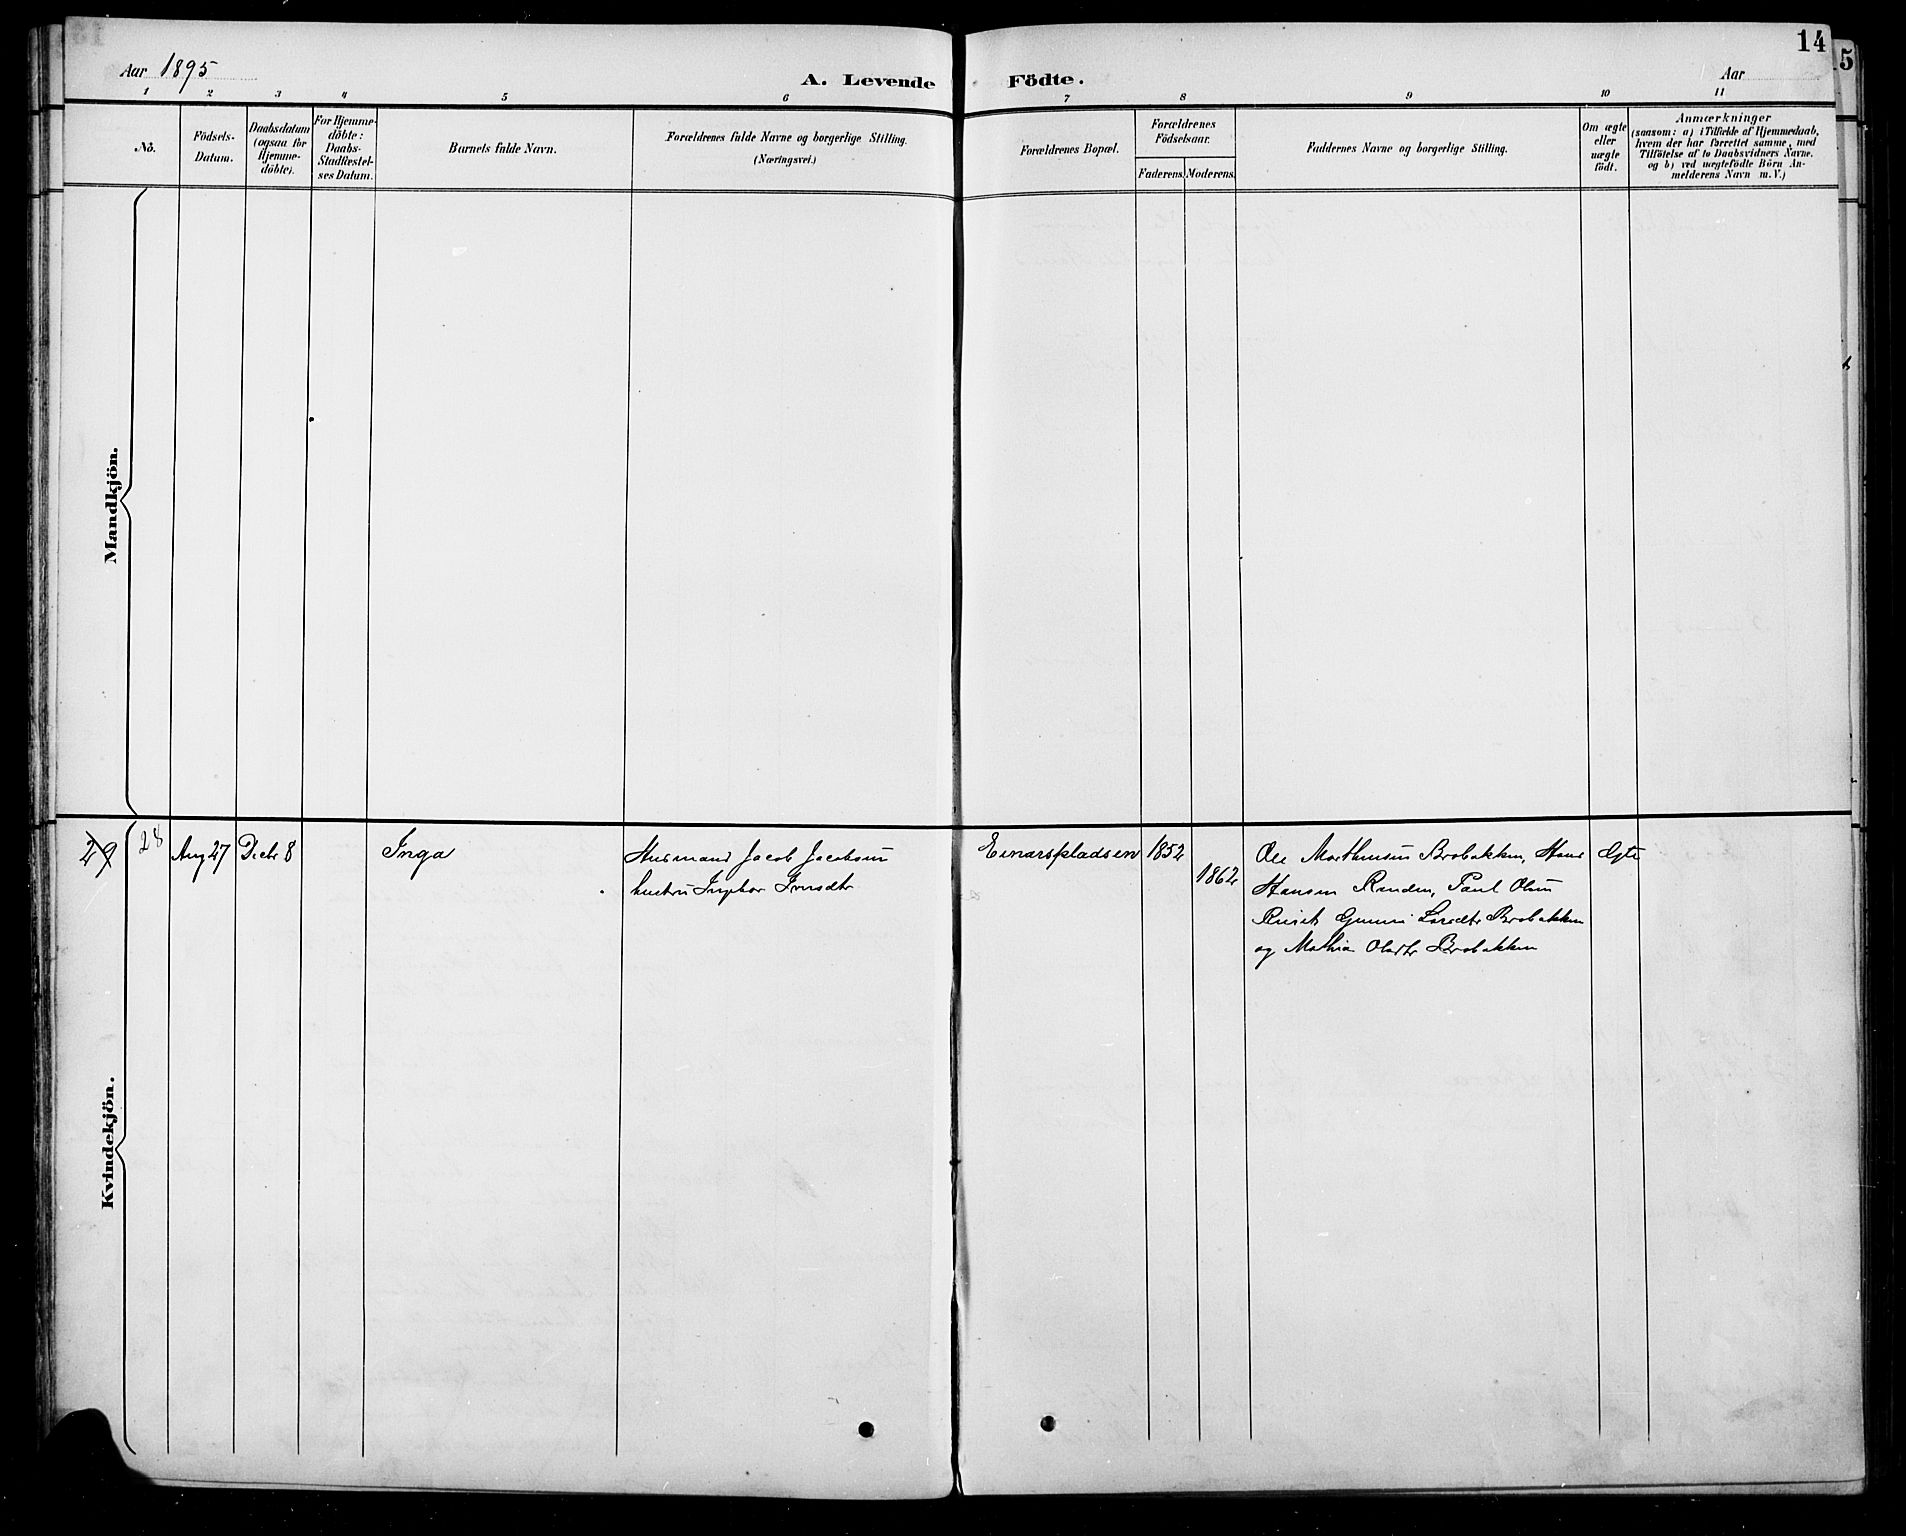 14
5
Aar 1895
A. Levende Födte.
Aar
1 2 3 4 5 6 7 8 9 10 11
No.
Födsels-
Datum.
Daabsdatum
(ogsaa for
Hjemme-
döbte).
For Hjemme-
döbte:
Daabs-
Stadfæstel-
ses Datum.
Barnets fulde Navn.
Forældrenes fulde Navne og borgerlige Stilling.
(Næringsvei.)
Forældrenes Bopæl.
Forældrenes
Födselsaar.
Faderens. Moderens.
Faddernes Navne og borgerlige Stilling.
Om ægte
eller
uægte
födt.
Anmærkninger
(saasom: a) i Tilfælde af Hjemmedaab,
hvem der har forrettet samme, med
Tilföielse af to Daabsvidners Navne,
og b) ved uegtefödte Börn An-
melderens Navn m.V.)
Mandkjön.
Kvindekjön.
29 28 Aug 27 Decbr 8
Inga
Husmand Jacob Jacobsen
hustru Ingebor
Einarspladsen
1852
1862
Ole Marthinsen Brobakken, Hans
Hansen Renden, Paul Olsen
Ruset Gunni Larsdtr Brobakken
og Mathia Olsdtr Brobakken
Egte